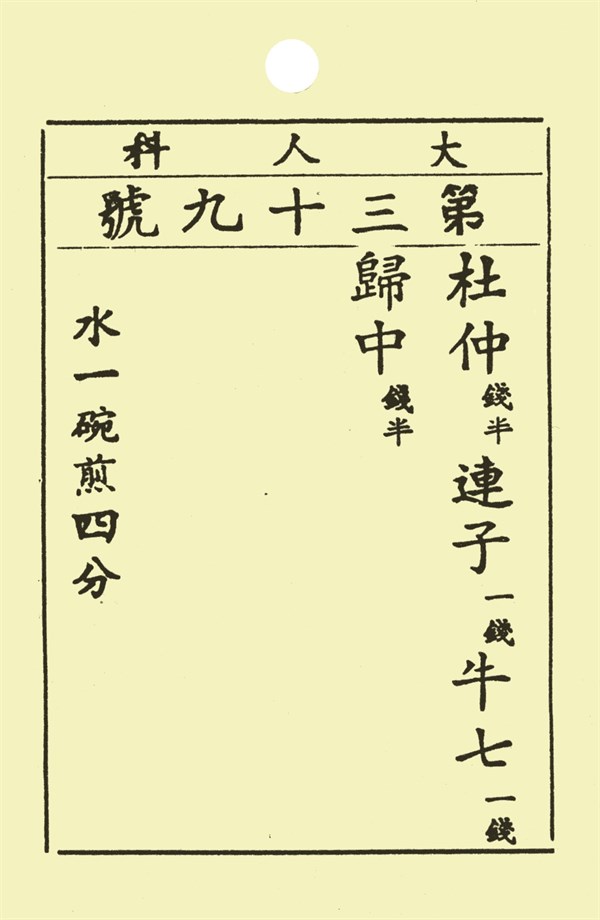 大人科
第三十九號
杜仲錢半連子一錢牛七一錢
歸中錢半
水一碗煎四分